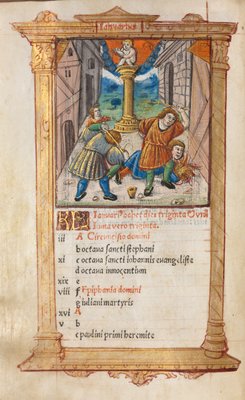 Januarius
Januari9 habet dies triginta unu
Luna vero triginta.
iii A Circuncisio domini
b octava sancti stephani
xi c octava sancti iohannis evangeliste
d octava innocentum
xix e
viii f Epiphania domini
g iuliani martyris
xvi A
v b
c paulini primi heremite